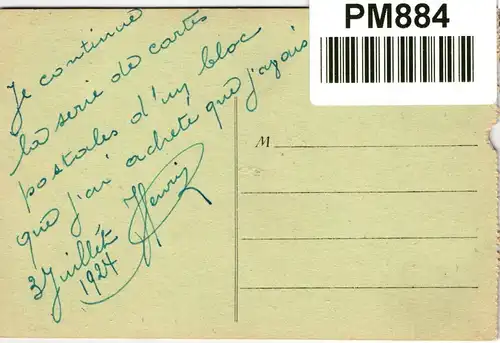 PM884
Je continue
la serie de cartes
postales d'un bloc
que j'ai acheté que j'avais
Henri
3 Juillet
1924
M